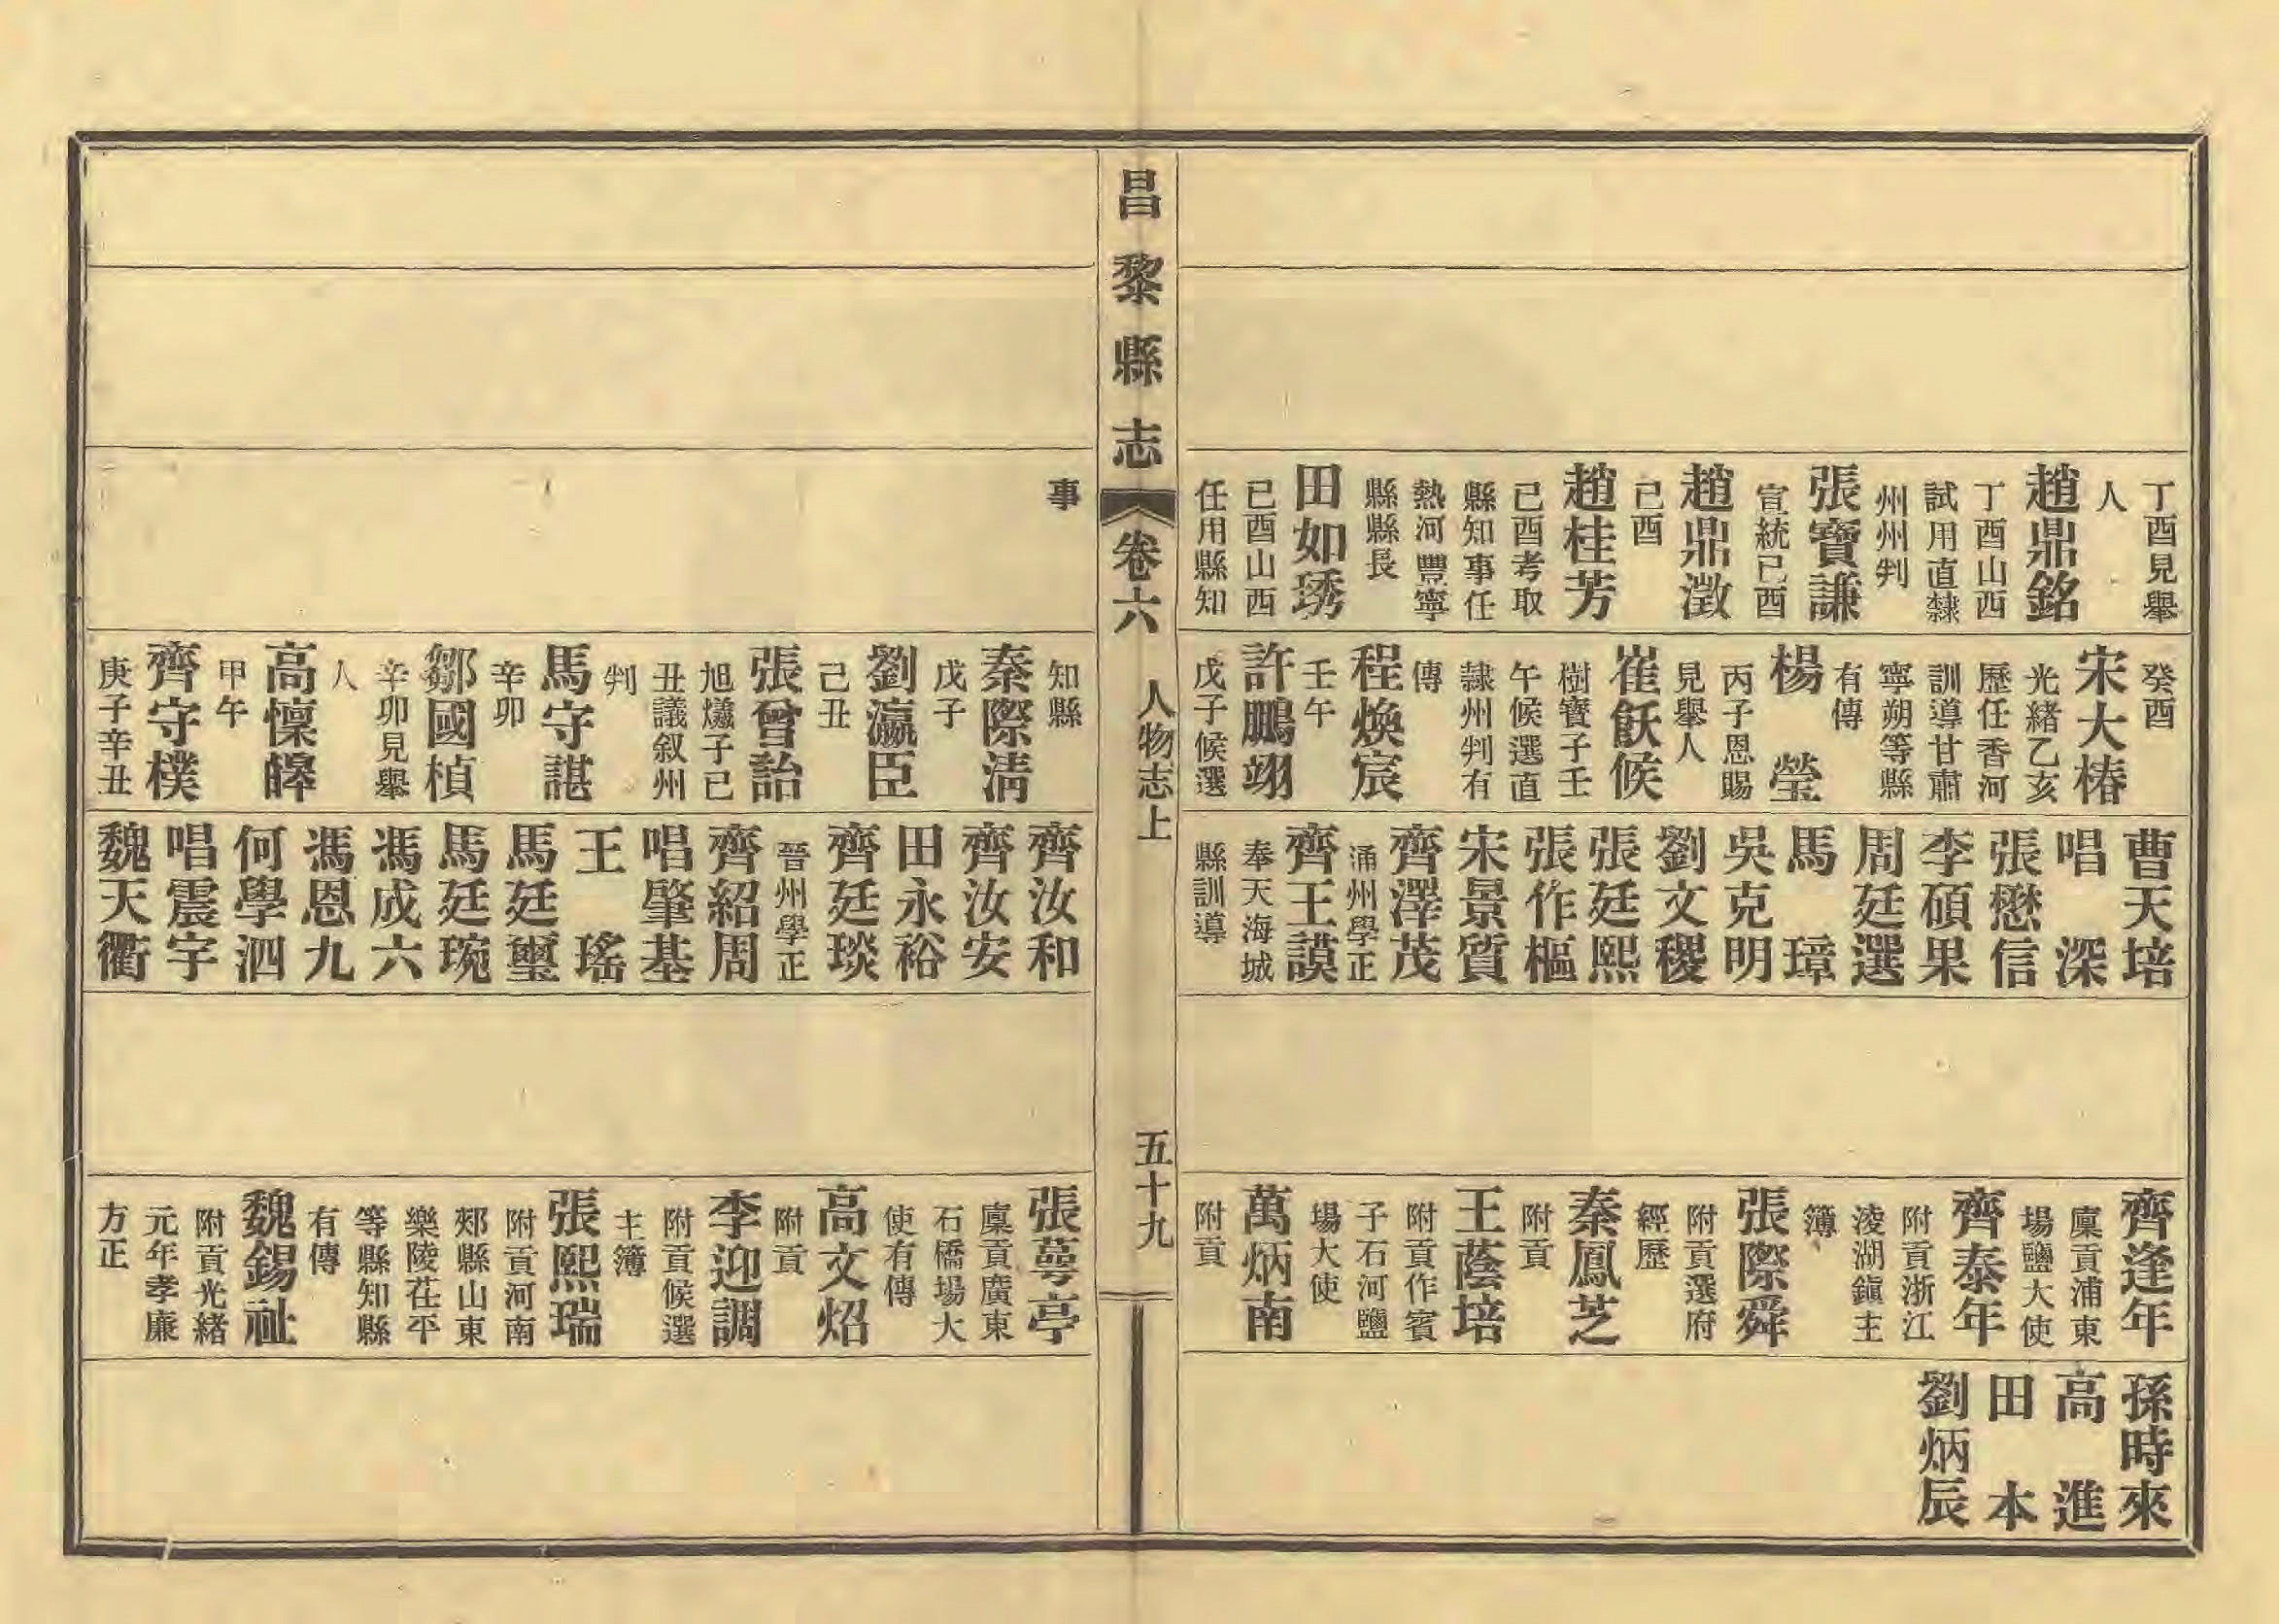 丁酉見舉
人
趙鼎銘
丁酉山西
試用直隸
州州判
張寶謙
宣統己酉
趙鼎澂
己酉
趙桂芳
己酉考取
縣知事任
熱河豐寧
縣縣長
田如琇
己酉山西
任用縣知
癸酉
宋大椿
光緒乙亥
歷任香河
訓導甘肅
寧朔等縣
有傳
楊瑩
丙子恩賜
見舉人
崔飫候
樹寶子壬
午候選直
隸州判有
傳
程煥宸
壬午
許鵬翊
戊子候選
曹天培
唱深
張懋信
李碩果
周廷選
馬璋
吳克明
劉文稷
張廷熙
張作樞
宋景質
齊澤茂
涌州學正
齊王謨
奉天海城
縣訓導
齊逢年
廩貢浦東
場鹽大使
齊泰年
附貢浙江
淩湖鎭主
簿
張際舜
附貢選府
經歷
秦鳳芝
附貢
王蔭培
附貢作賓
子石河鹽
場大使
萬炳南
附貢
孫時來
高進
田本
劉炳辰
昌黎縣志
卷六
人物志上
五十九
事
知縣
秦際清
戊子
劉瀛臣
己丑
張曾詒
旭爔子己
丑議叙州
判
馬守諶
辛卯
鄒國楨
辛卯見舉
人
高懍皥
甲午
齊守樸
庚子辛丑
齊汝和
齊汝安
田永裕
齊廷琰
晉州學正
齊紹周
唱肇基
王瑤
馬廷璽
馬廷琬
馮成六
馮恩九
何學泗
唱震宇
魏天衢
張蕚亭
廩貢廣東
石橋場大
使有傳
高文炤
附貢
李迎調
附貢候選
主簿
張熙瑞
附貢河南
郟縣山東
樂陵茌平
等縣知縣
有傳
魏錫祉
附貢光緒
元年孝廉
方正